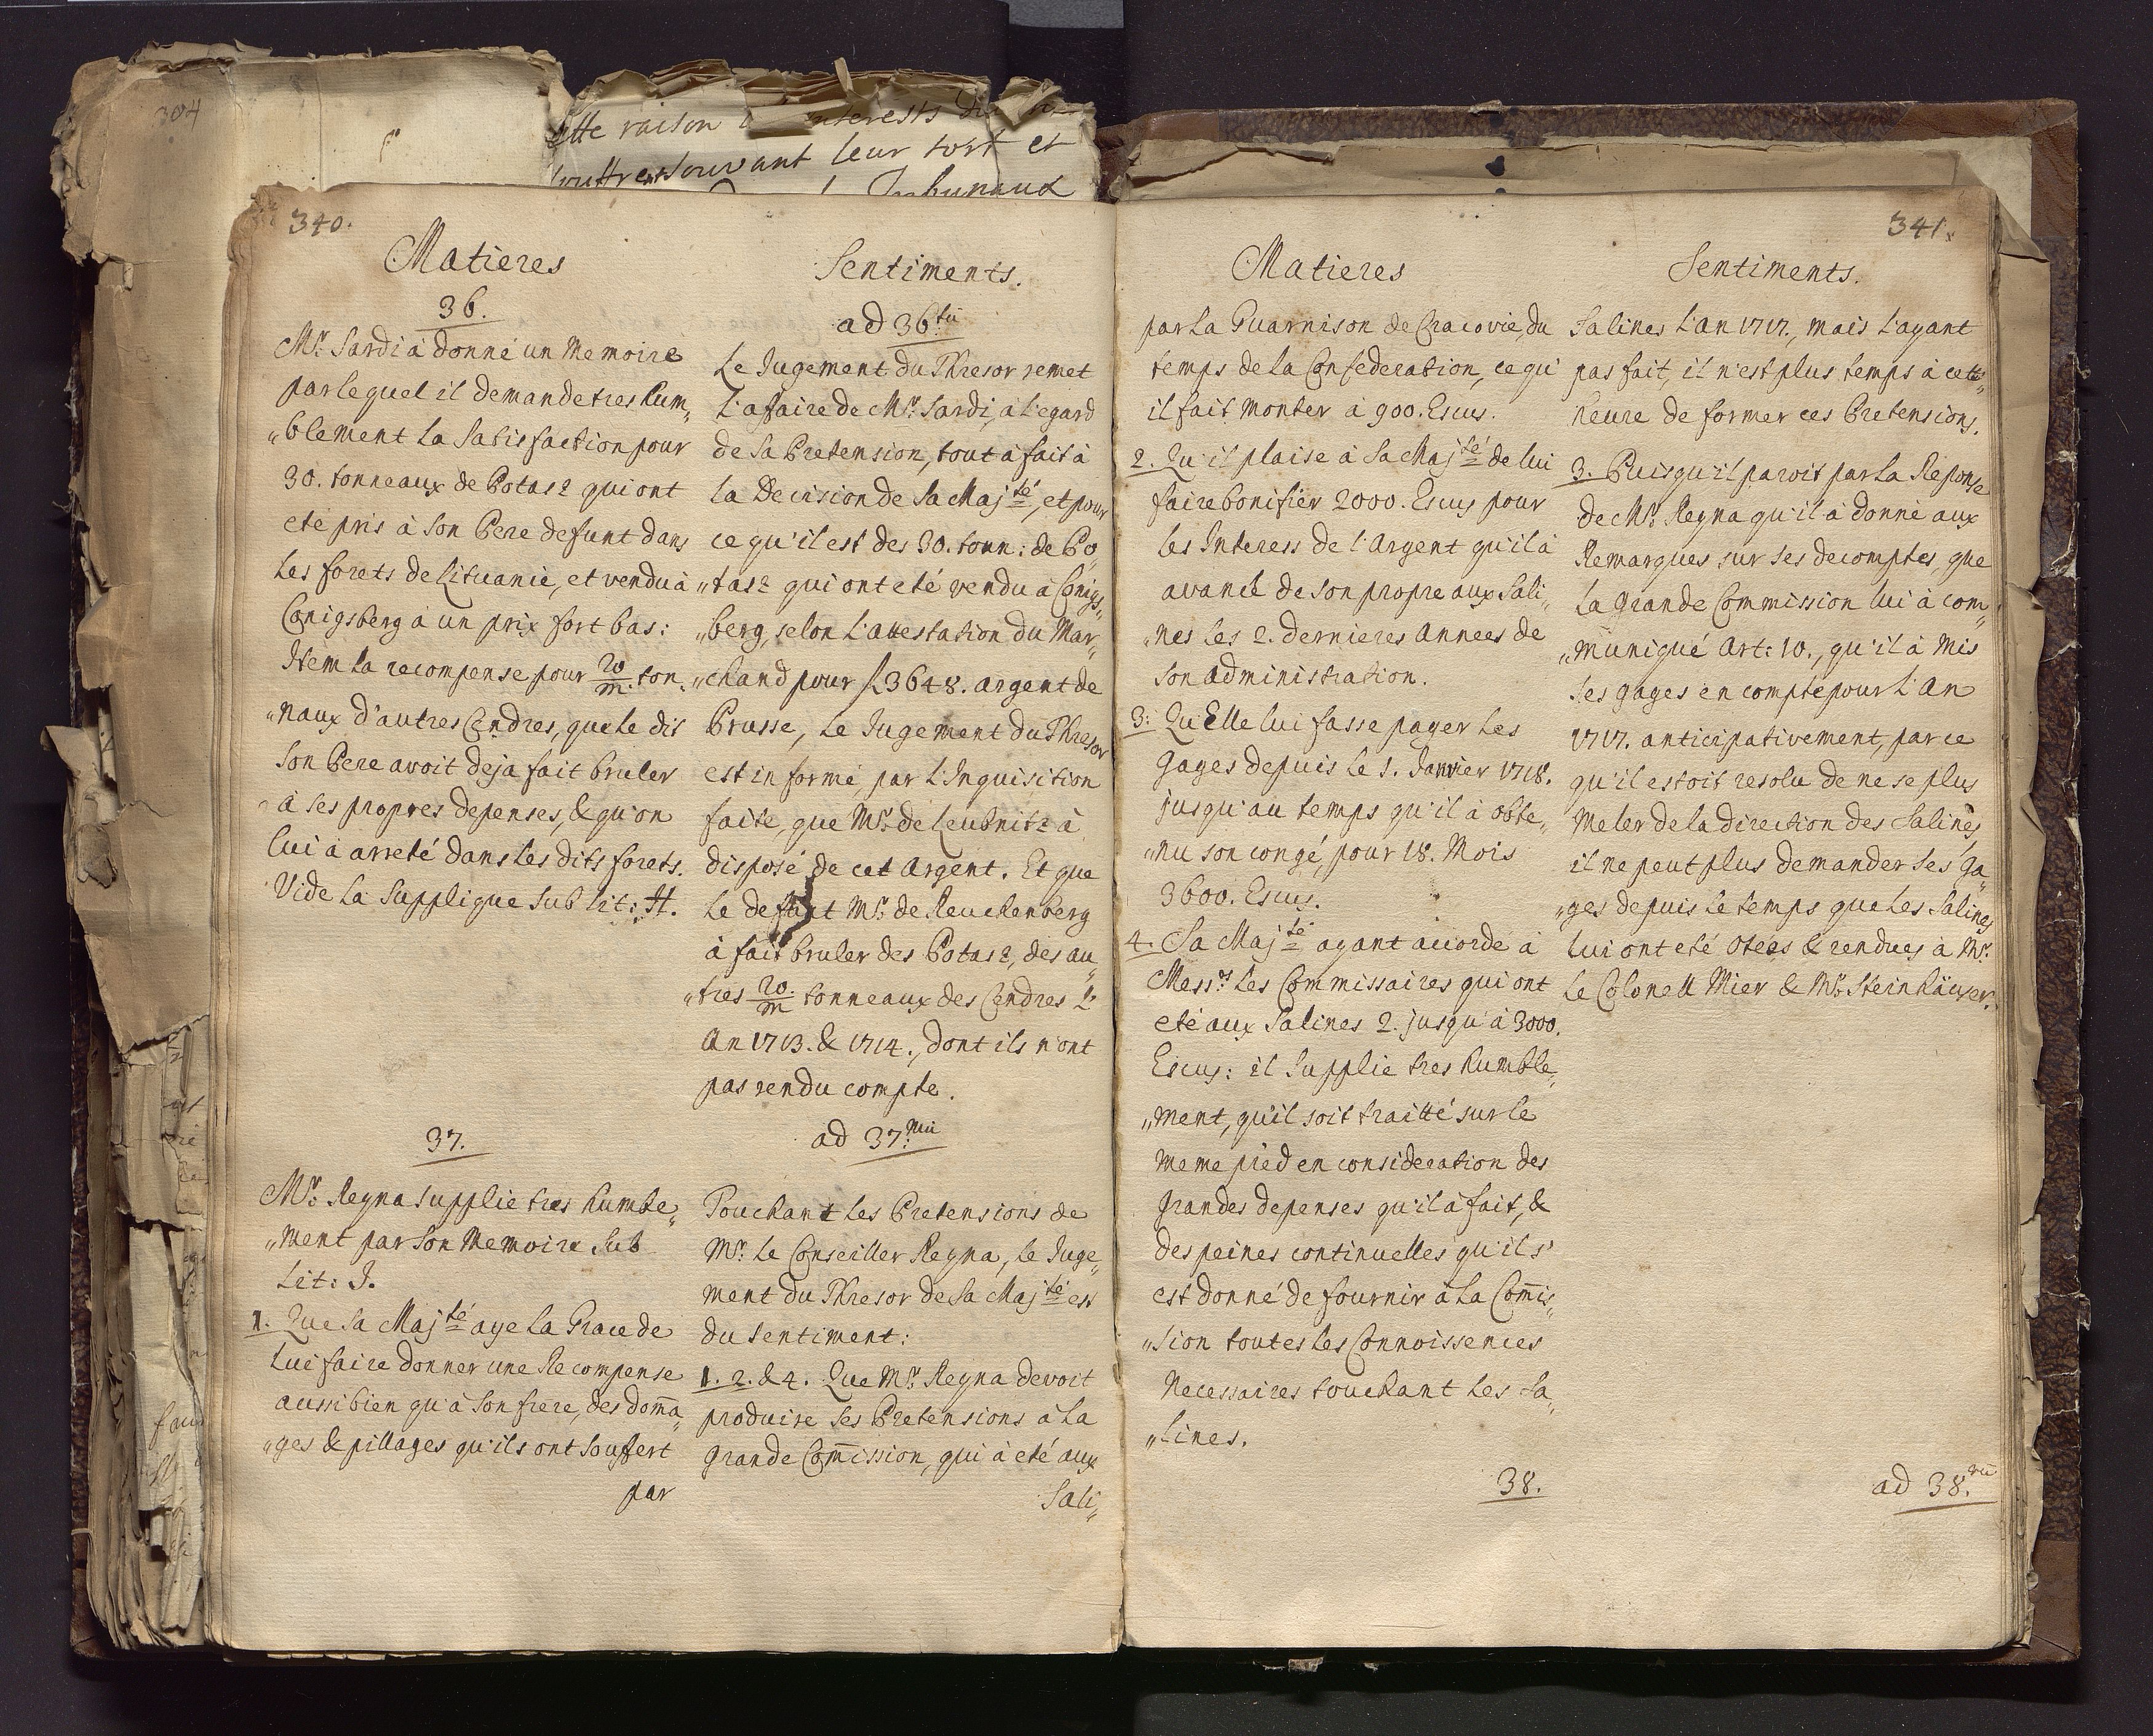 304
ette raison interests du
souffrent souvant leur tort et
Tribunaux
340.
Matieres
36.
Mr. Sardi à donné un Memoire
par lequel il demande tres hum„
„blement la Satisfaction pour
30. tonneaux de Potasz qui ont
eté pris à Son Pere defunt dans
les forets de Lituanie, et vendu à
Conigsberg à un prix fort bas:
Item la recompense pour 20/m. ton„
„naux d'autres Cendres, que le dit
Son Pere avoit deja fait bruler
à ses propres depenses, & qu'on
lui à arreté dans les dits forets.
Vide la Supplique sub Lit: H.
37.
Mr. Regna supplie tres humble„
„ment par Son Memoire Sub
Lit: J.
1. Que Sa Majté aye la Grace de
lui faire donner une Recompense
aussi bien qu'à Son frere, des dom̄a„
„ges & pillages qu'ils ont soufert
par
Sentiments.
ad 36.tū
Le Jugement du Thresor remet
l'afaire de Mr. Sardi, à l'egard
de Sa Pretension, tout à fait à
la Decision de Sa Majté, et pour
ce qu'il est des 30. tonn: de Po„
„tasz qui ont eté vendu à Conigs„
„berg, selon l'attestation du Mar„
„chand pour f. 3648. argent de
Prusse, le Jugement du Thresor
est informé, par l'Inquisition
faite, que Mr. de Leubnitz à
disposé de cet Argent. Et que
le defunt Mr. de Reuchenberg
à fait bruler des Potasz, des au„
„tres 20./m tonneaux des Cendres l'
An 1713. & 1714., dont ils n'ont
pas rendu compte.
ad 37.mū
Touchant les Pretensions de
Mr. le Conseiller Regna, le Juge„
ment du Thresor de Sa Majté est
du Sentiment:
1. 2. & 4. Que Mr. Regna devoit
produire ses Pretensions à la
grande Com̄ission, qui à eté aux
Sali„
341.
Matieres
par la Guarnison de Cracovie, du
temps de la Confederation, ce qu'
il fait monter à 900. Escus.
2. Qu'il plaise à Sa Majté de lui
faire bonifier 2000. Escus pour
les Interess de l'Argent qu'il à
avancé de son propre aux Sali„
„nes les 2. dernieres Annees de
Son administration.
3: Qu'Elle lui fasse payer les
gages depuis le 1. Janvier 1718.
jusqu'au temps qu'il à obte„
„nu son congé, pour 18. Mois
3600. Escus.
4. Sa Majté ayant acordé à
Messrs les Commissaires qui ont
eté aux Salines 2. jusqu'à 3000.
Escus: il Supplie tres humble„
„ment, qu'il soit traitté sur le
meme pied en consideration des
grandes depenses qu'il à fait, &
des peines continuelles qu'il s'
est donné de fournir à la Com̄is„
„sion toutes les Connoissences
Necessaires touchant les Sa„
„lines.
38.
Sentiments.
Salines l'an 1717., mais l'ayant
pas fait, il n'est plus temps à cett„
heure de former ces Pretensions.
3. Puisqu'il paroit par la Reponse
de Mr. Regna qu'il à donné aux
Remarques sur ses decomptes, que
la grande Commission lui à com„
„muniqué Art: 10., qu'il à mis
ses gages en compte pour l'An
1717. anticipativement, parce
qu'il estoit resolu de ne se plus
meler de la direction des Salines,
il ne peut plus demander ses ga„
„ges depuis le temps que les Salines
lui ont eté otees & rendues à Mr.
le Colonell Mier & Mr. Steinhäuser.
ad 38.vū